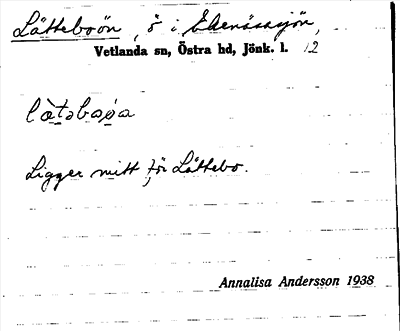 Lätteboön, ö i Ekenässjön,
Vetlanda sn, Östra hd, Jönk. l. 12
Ligger mitt för Lättebo.
Annalisa Andersson 1938